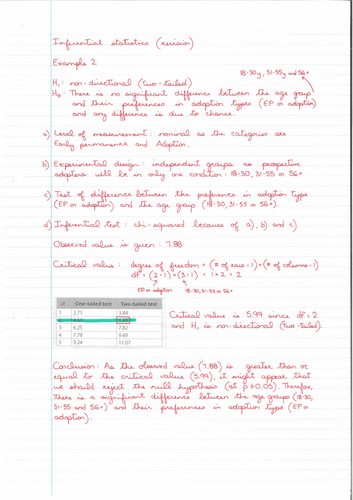 Inferential statistics (revision)
Example 2
18-30y, 31-55y and 56+
H₁: non-directional (two-tailed)
H₀: There is no significant difference between the age group
and their preferences in adoption types (EP or adoption)
and any difference is due to chance.
a) Level of measurement: nominal as the categories are
Early permanence and Adoption.
b) Experimental design: independent groups as prospective
adopters will be in only one condition: 18-30, 31-55 or 56+.
c) Test of difference between the preference in adoption type
(EP or adoption) and the age group (18-30, 31-55 or 56+).
d) Inferential test: chi-squared because of a), b) and c)
Observed value is given: 7.88
Critical value: degree of freedom = (# of rows-1)×(# of columns-1)
df = (2-1)×(3-1) = 1×2 = 2
EP or adoption 18-30, 31-55 or 56+
df One-tailed test Two-tailed test
1 2.71 3.84
2 4.60 5.99
3 6.25 7.82
4 7.78 9.49
5 9.24 11.07
Critical value is 5.99 since df = 2
and H₁ is non-directional (two-tailed).
Conclusion: As the observed value (7.88) is greater than or
equal to the critical value (5.99), it might appear that
we should reject the null hypothesis (at p≤0.05). Therefore,
there is a significant difference between the age groups (18-30,
31-55 and 56+) and their preferences in adoption type (EP or
adoption).